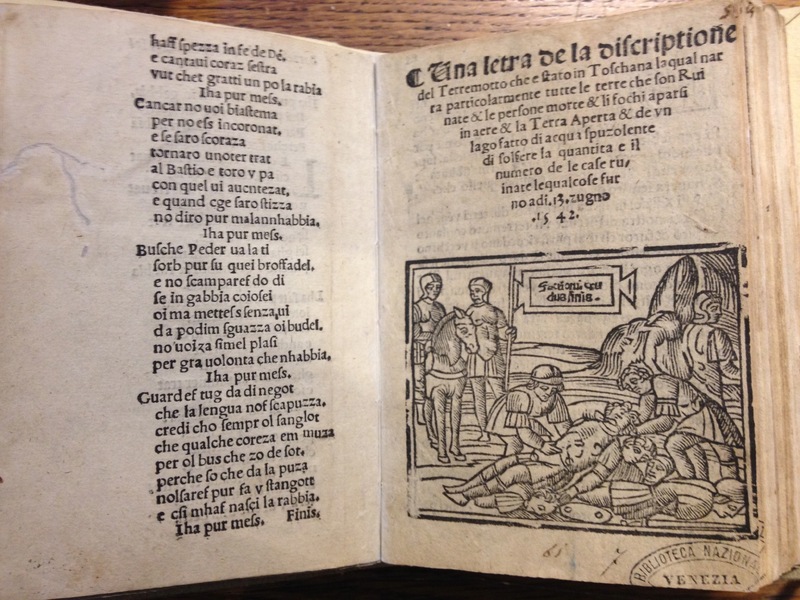 haſſ spezza in fe de Dé.
e cantaui coraz sestra
vut chet gratti un po la rabia
Iha pur mess.
Cancar no uoi biastema
per no ess incoronat,
e se saro scoraza
tornaro unoter trat
al Bastio e toro v pa
con quel ui auentezat,
e quand cge saro stizza
no diro pur malannhabbia,
Iha pur mess.
Busche Peder ua la ti
sorb pur su quei broffadel,
e no scamparef do di
se in gabbia coiosei
oi ma mettess senza,ui
da podim sguazza oi budel,
no uoiza simel plasi
per gra uolonta che nhabbia,
Iha pur mess.
Guard es tug da di negot
che la lengua nos scapuzza,
credi cho sempr ol sanglot
che qualche coreza em muza
per ol bus che zo de sot,
perche so che da la puza
nolsaref pur fa v stangott
e csi mhaf nasci la rabbia.
Iha pur mess. Finis.
Una letra de la discriptione
del Terremotto che e stato in Toschana la qual nar
ra particolarmente tutte le terre che son Rui
nate & le persone morte & li fochi aparsi
in aere & la Terra Aperta & de vn
lago fatto di acqua spuzolente
di solfere la quantita e il
numero de le case ru/
inate lequal cose fur
no adi .13. zugno
.1542.
BIBLIOTECA NAZIONA
VENEZIA